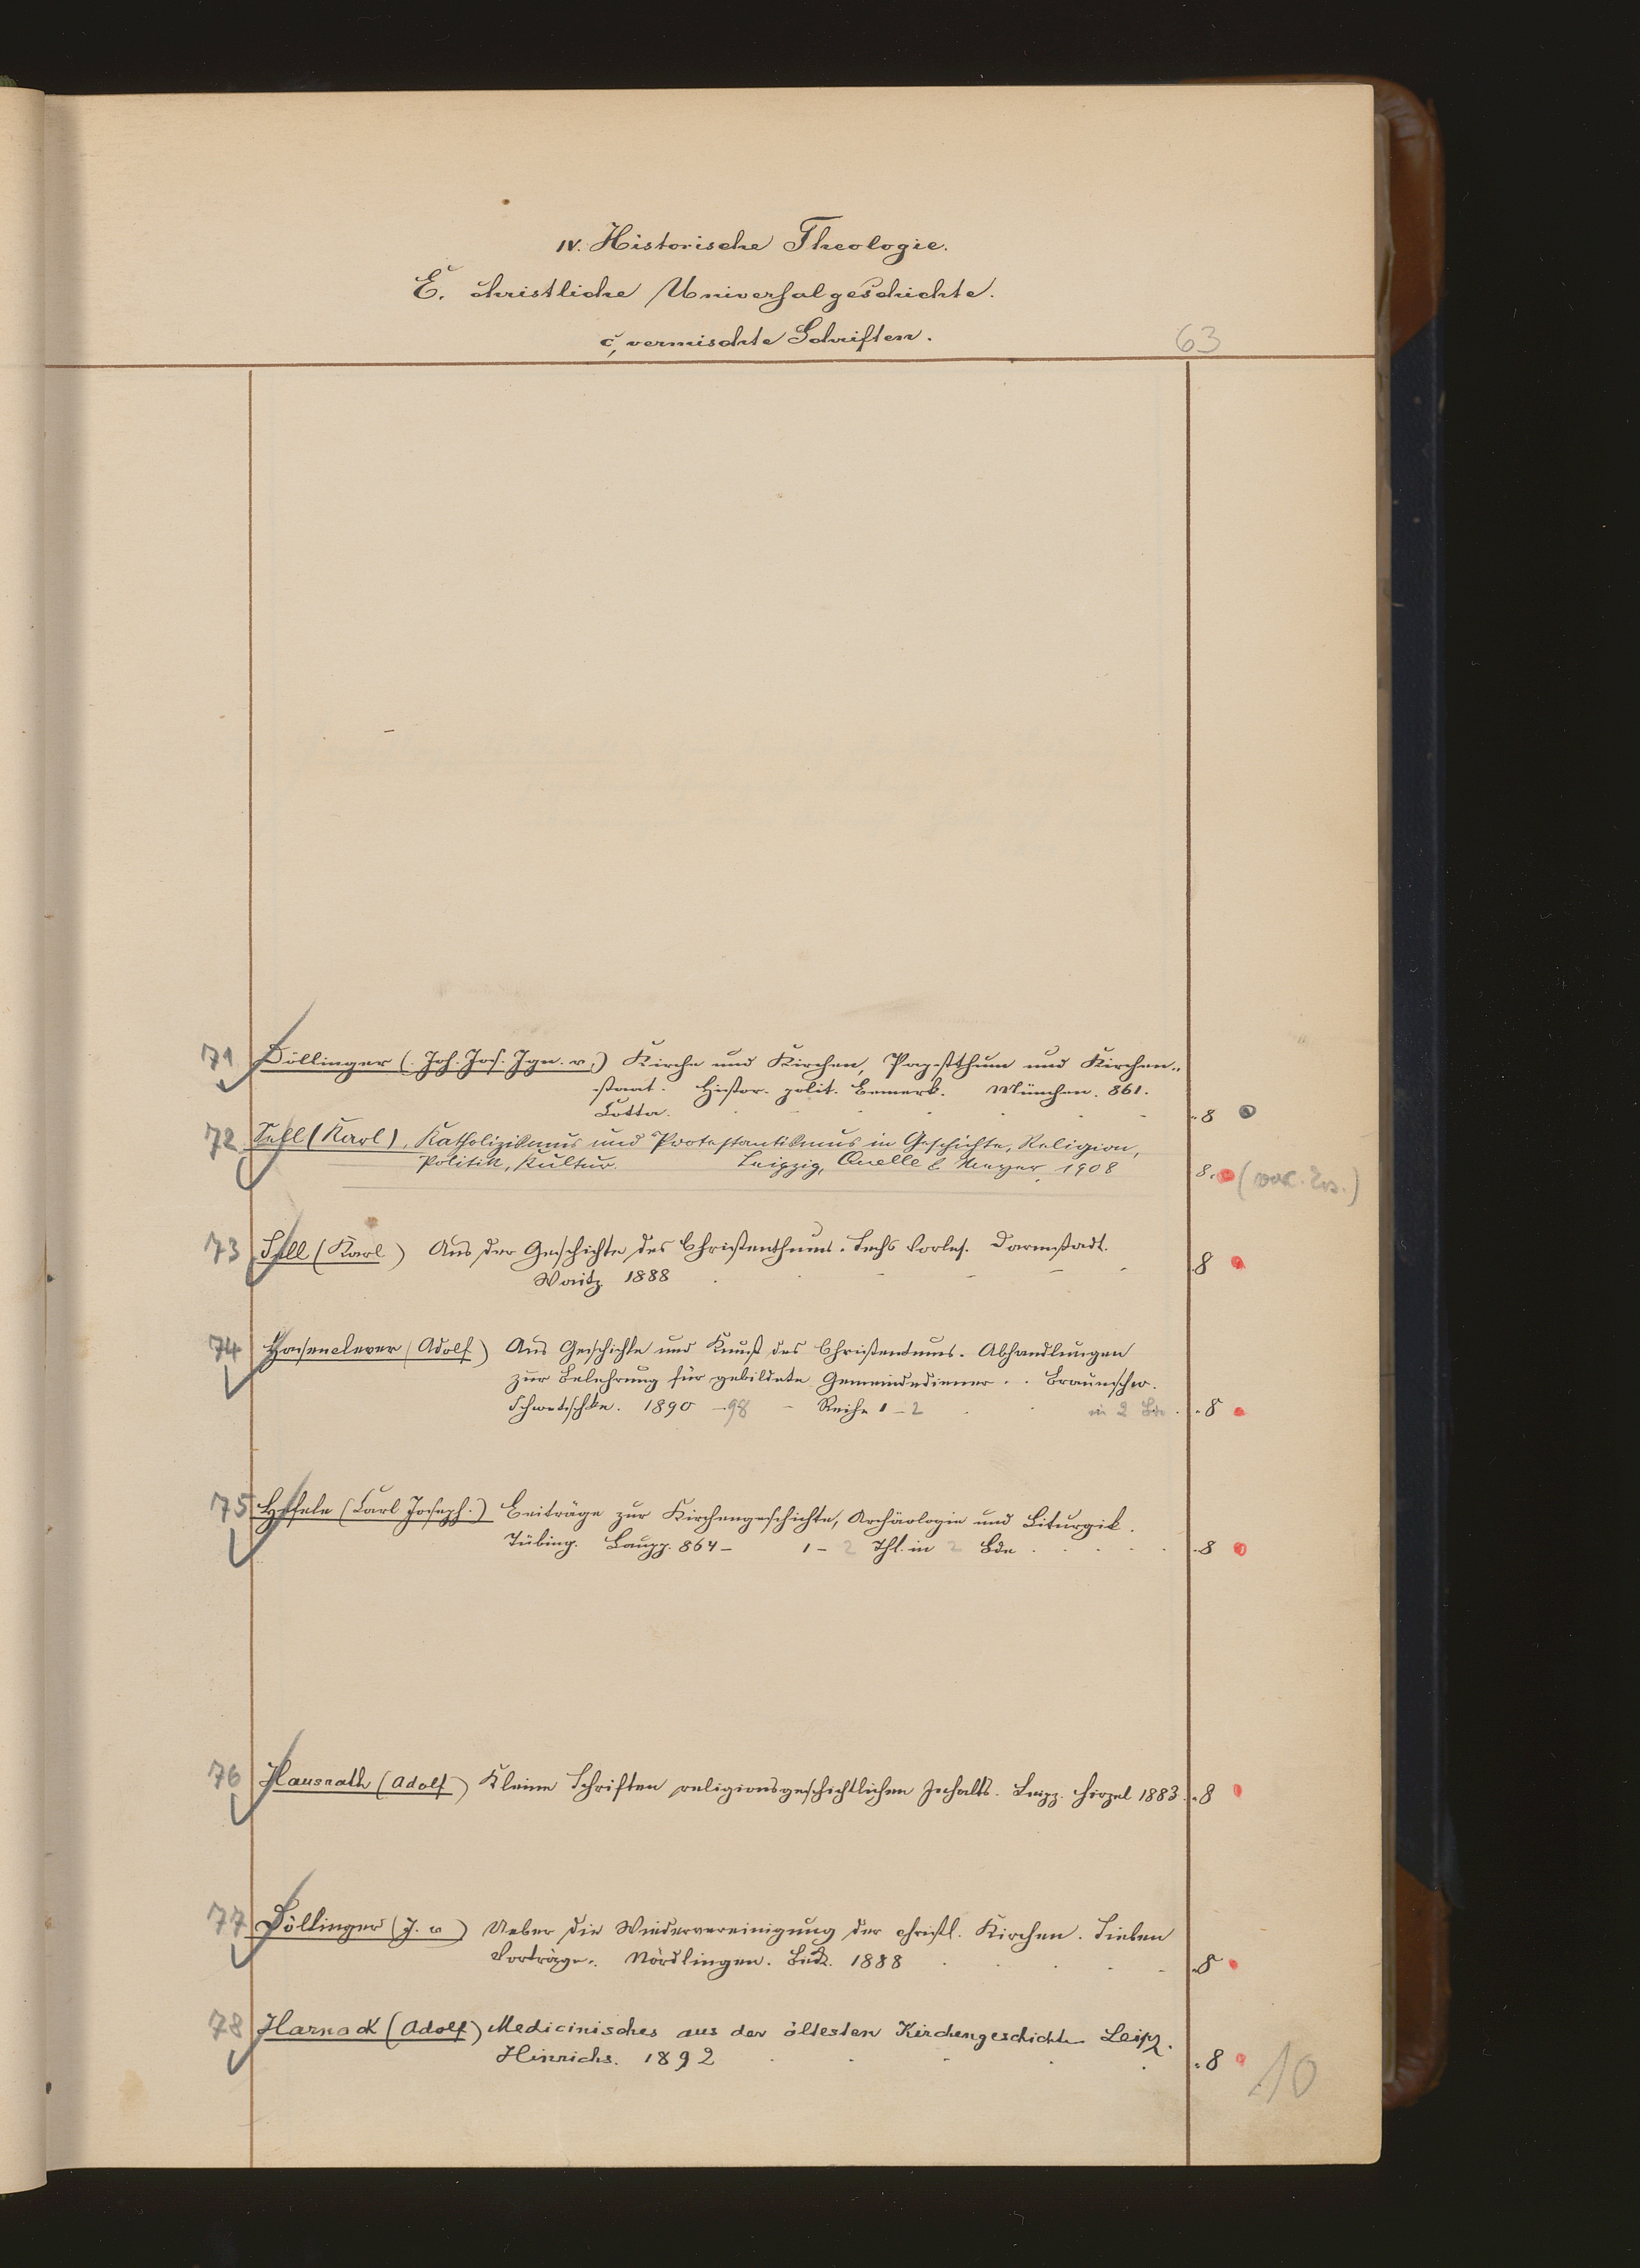 IV. Historische Theologie.
E. christliche Universalgeschichte.
c, vermischte Schriften. 63
71 Döllinger (Joh. Jos. Ign. v.) Kirche und Kirchen, Papstthum und Kirchen-
staat. Histor. polit. Bemerk. München. 861.
Cotta. 8
72 Sell (Karl), Katholizismus und Protestantismus in Geschichte, Religion,
Politik, Kultur. Leipzig, Quelle & Meyer 1908 8.
73 Sell (Karl) Aus der Geschichte des Christenthums. Sechs Vorles. Darmstadt.
Waitz 1888 8
74 Hasenclever (Adolf) Aus Geschichte und Kunst des Christentums. Abhandlungen
zur Belehrung für gebildete Gemeindediener . . Braunschw.
Schwetschke. 1890 -98 - Reihe 1-2 in 2 Bde . 8
75 Hefele (Carl Joseph.) Beiträge zur Kirchengeschichte, Archäologie und Liturgik.
Tübing. Laupp. 864- 1-2 Thl. in 2 Bde 8
76 Hausrath (Adolf) Kleine Schriften religionsgeschichtlichen Inhalts. Leipz. Hirzel 1883. 8
77 Döllinger (J. v) Ueber die Wiedervereinigung der christl. Kirchen. Sieben
Vorträge. Nördlingen. Beck. 1888 8
78 Harnack (Adolf) Medicinisches aus der ältesten Kirchengeschichte Leipz.
Hinrichs. 1892 8
10